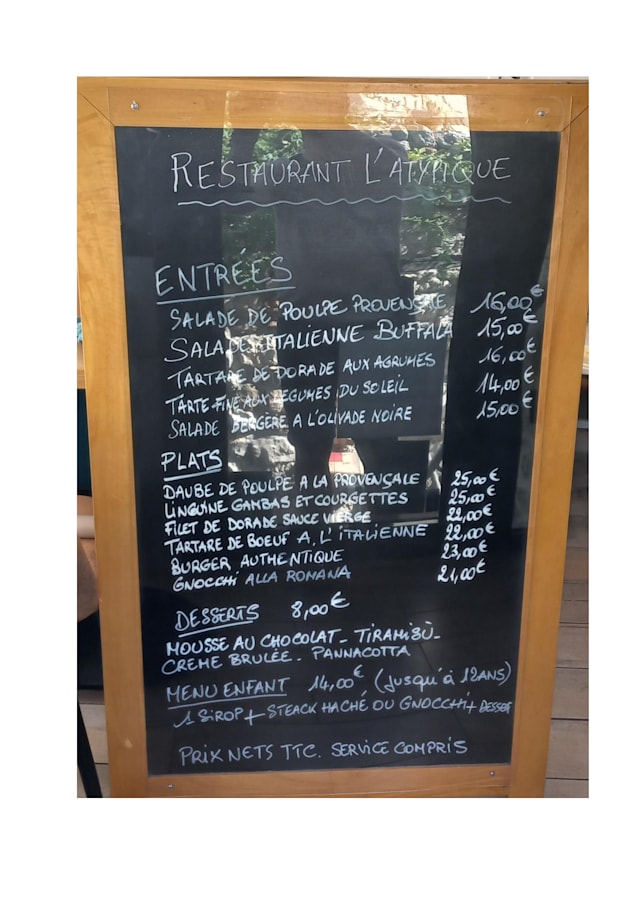 RESTAURANT L'ATYPIQUE
ENTRÉES
SALADE DE POULPE PROVENÇALE 16,00€
SALADE ITALIENNE BUFFALA 15,00€
TARTARE DE DORADE AUX AGRUMES 16,00€
TARTE FINE AUX LEGUMES DU SOLEIL 14,00€
SALADE BERGERE A L'OLIVADE NOIRE 15,00€
PLATS
DAUBE DE POULPE A LA PROVENÇALE 25,00€
LINGUINE GAMBAS ET COURGETTES 25,00€
FILET DE DORADE SAUCE VIERGE 22,00€
TARTARE DE BOEUF A L'ITALIENNE 22,00€
BURGER AUTHENTIQUE 23,00€
GNOCCHI ALLA ROMANA 21,00€
DESSERTS 8,00€
MOUSSE AU CHOCOLAT - TIRAMISÙ -
CREME BRULÉE - PANNACOTTA
MENU ENFANT 14,00€ (Jusqu'à 12ANS)
1 SIROP + STEACK HACHÉ OU GNOCCHI + DESSERT
PRIX NETS TTC. SERVICE COMPRIS